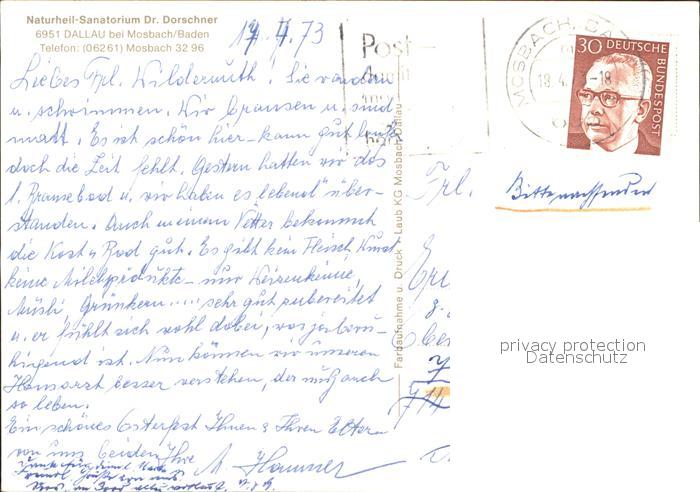 Naturheil-Sanatorium Dr. Dorschner
6951 DALLAU bei Mosbach/Baden
Telefon: (06261) Mosbach 32 96
17.4.73
Liebes Frl. Wildermuth! Sie wandern
u. schwimmen. Wir brausen u. sind
matt. Es ist schön hier – kann gut
doch die Zeit fehlt. Gestern hatten wir das
1. Brausebad u. wir haben es lebend über-
standen. Auch meinem Vetter bekommt
die Kost u Bad gut. Es gibt kein Fleisch, Wurst
keine Milchprodukte – nur Weizenkeime,
Müsli, Grünkern..... sehr gut zubereitet
u. er fühlt sich wohl dabei, was ja beru-
higend ist. Nun können wir unseren
Hausarzt besser verstehen, der muß auch
so leben.
Ein schönes Osterfest Ihnen & Ihren Eltern
von uns beiden Ihre
M. Hammer
Farbaufnahme u. Druck Laub KG Mosbach-Dallau
Post-
MOSBACH, BA
18.4. -18
30 DEUTSCHE BUNDESPOST
Frl.
Bitte nachsenden
privacy protection
Datenschutz